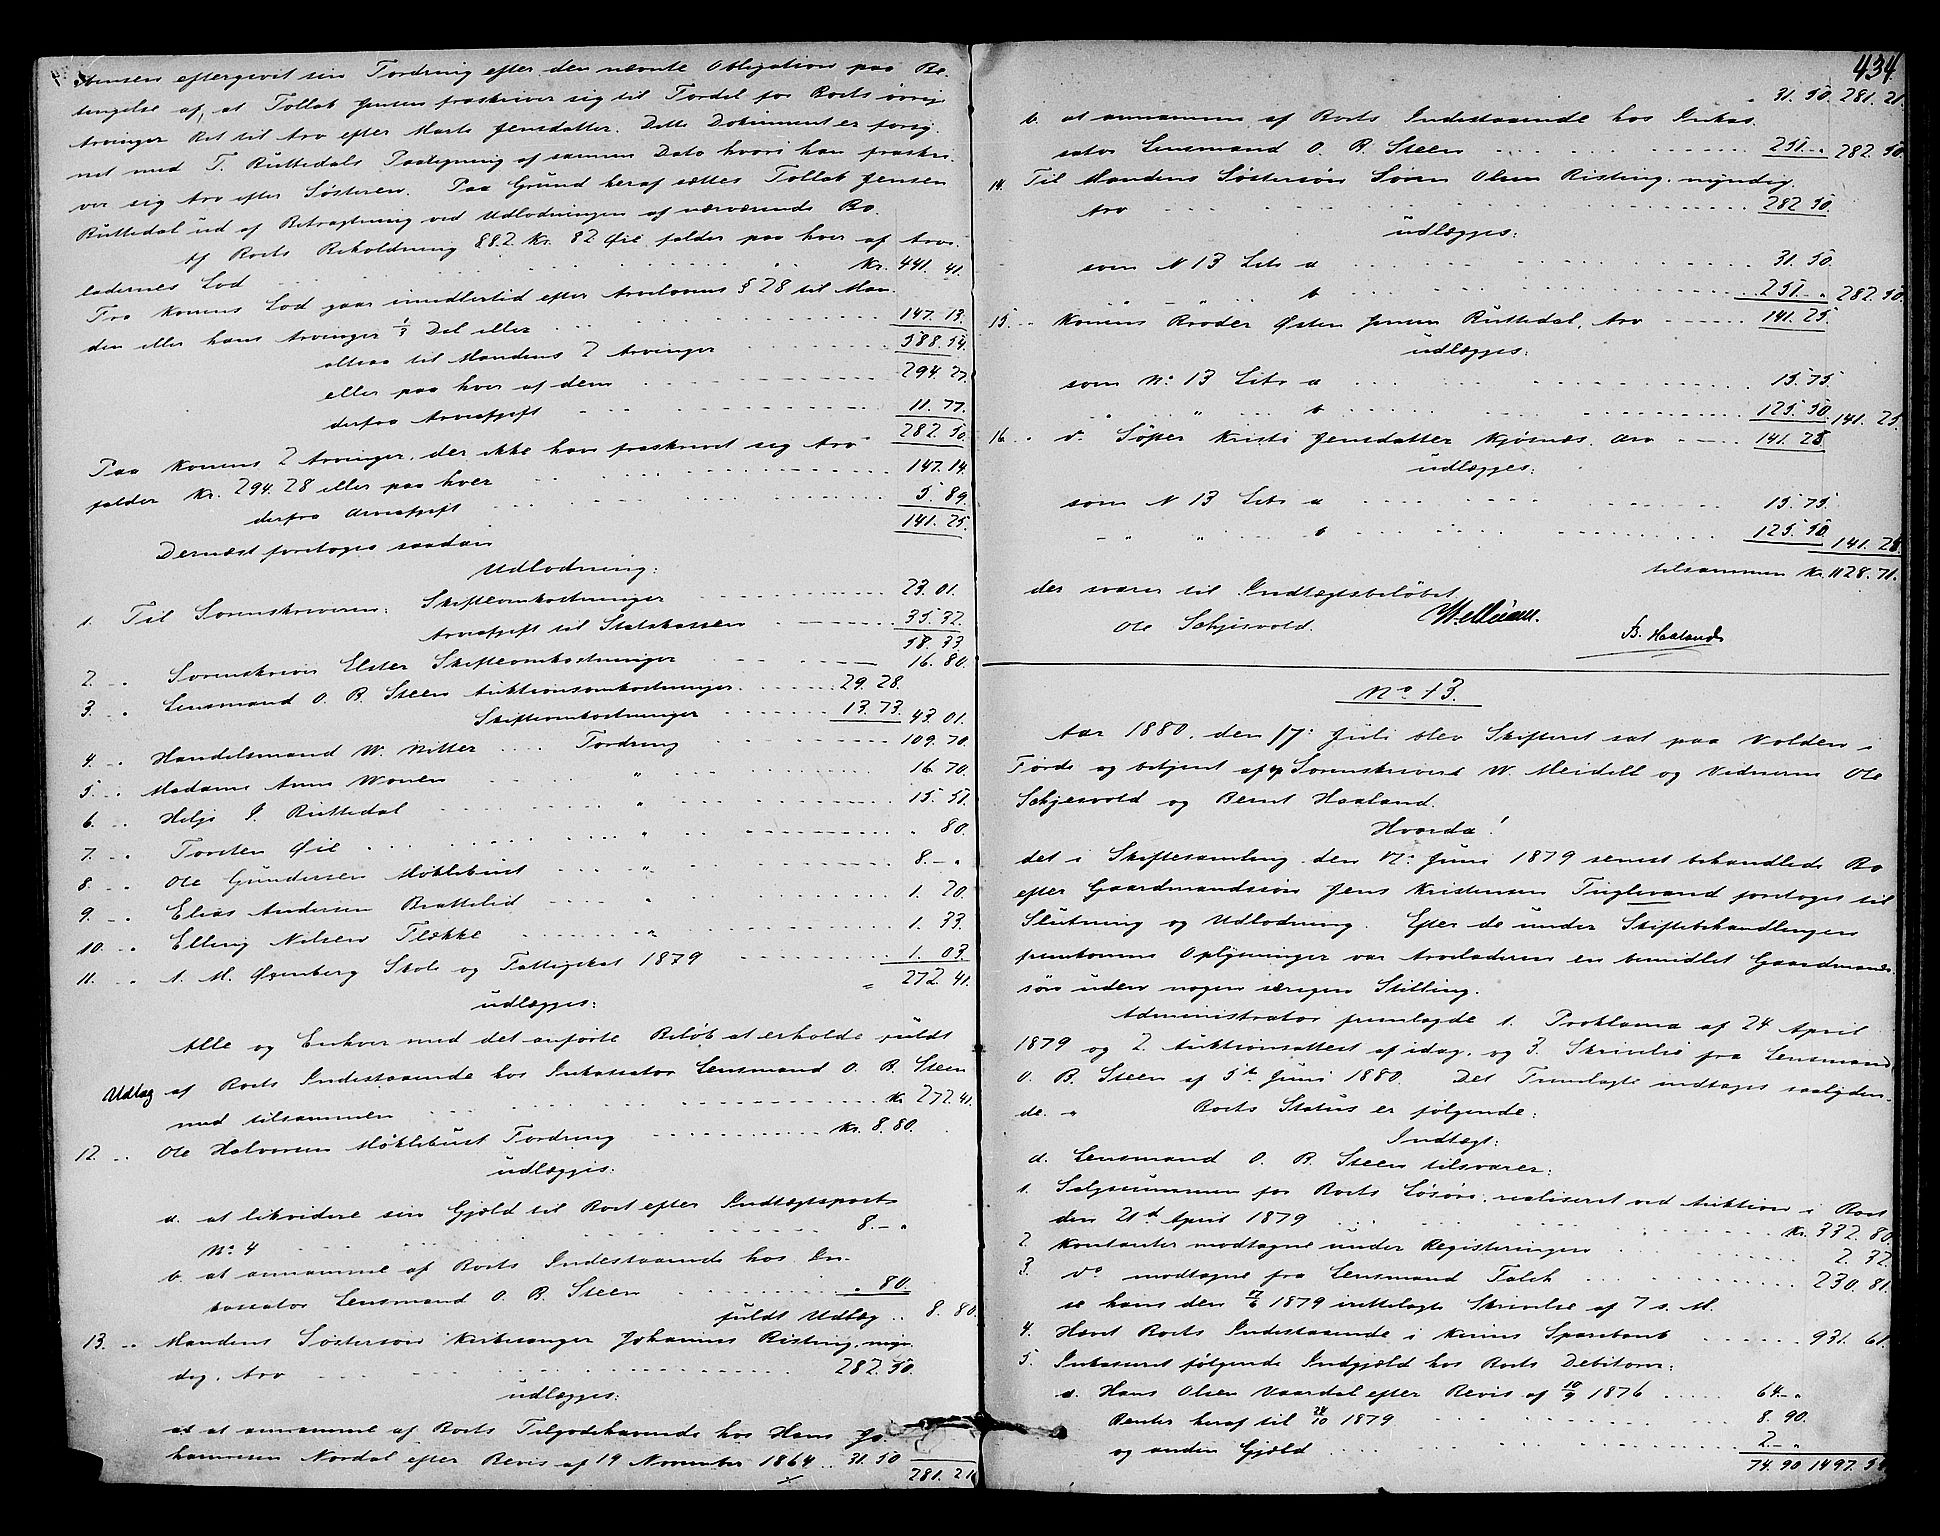 Jensen eftergivet sin Fordring efter den nævnte Obligation paa Be-
tingelse af, at Tollak Jensen fraskriver sig til Fordel for Boets øvrige
Arvinger Ret til Arv efter Marte Jensdatter. Dette Dokument er forsy-
net med T. Ruttedals Paategning af samme Dato hvori han fraskri-
ver sig Arv efter Søsteren. Paa Grund heraf sættes Tollak Jensen
Ruttedal ud af Betragtning ved Udlodningen af nærværende Bo.
Af Boets Beholdning 882 Kr. 82 Øre falder paa hver af Arve-
ladernes Lod . . . Kr. 441. 41.
Fra Konens Lod gaar imidlertid efter Arvelovens § 28 til Man-
den eller hans Arvinger 1/3 Del eller . . . 147. 13.
altsaa til Mandens 2 Arvinger . . . 588. 54.
eller paa hver af dem . . . 294. 27.
derfra Arveafgift . . . 11. 77.
282. 50.
Paa Konens 2 Arvinger, der ikke have fraskrevet sig Arv
falder Kr. 294. 28 eller paa hver . . . 147. 14.
derfra Arveafgift . . . 5. 89.
141. 25.
Dernæst foretoges saadan
Udlodning:
1. Til Sorenskriveren: Skifteomkostninger . . . 23. 01.
Arveafgift til Statskassen . . . 35. 32.
58. 33.
2. " Sorenskriver Elster Skifteomkostninger . . . 16. 80.
3. " Lensmand O. B. Steen Auktionsomkostninger . . . 29. 28.
Skifteomkostninger . . . 13. 73. 43. 01.
4. " Handelsmand W. Ritter . . . Fordring . . . 109. 70.
5. " Madame Anne Wonen . . . " . . . 16. 70.
6. " Helje J. Ruttedal . . . " . . . 15. 51.
7. " Torsten Øie . . . " . . . " 80.
8. " Ole Gundersen Møklebust . . . " . . . 8. – "
9. " Elias Andersen Brattelid . . . " . . . 1. 20.
10. " Elling Nilsen Flekke . . . " . . . 1. 33.
11. " A. M. Øxenberg Skole og Fattigskat 1879 . . . 1. 03.
272. 41.
udlægges:
Alle og Enhver med det anførte Beløb at erholde fuldt
Udlæg af Boets Indestaaende hos Inkassator Lensmand O. B. Steen
med tilsammen . . . Kr 272. 41.
12. " Ole Halvorsen Møklebust Fordring . . . Kr. 8. 80.
udlægges:
a. at likvidere sin Gjæld til Boet efter Indtægtspost
No. 4 . . . 8. – "
b. at annamme af Boets Indestaaende hos In-
kassator Lensmand O. B. Steen . . . " 80.
fuldt Udlæg . . 8. 80.
13. " Mandens Søstersøn Kirkesanger Johannes Risting, myn-
dig, Arv . . . 282. 50.
udlægges:
a. at annamme af Boets Tilgodehavende hos Hans Jo-
hannesen Nordal efter Bevis af 19 November 1864 . . 31. 50
281. 21.
434
31. 50. 281. 21.
b. at annamme af Boets Indestaaende hos Inkas-
sator Lensmand O. B. Steen . . . 251. – " 282. 50.
14. Til Mandens Søstersøn Søren Olsen Risting, myndig,
Arv . . . 282 50.
udlægges:
som N 13 Litr a . . . 31. 50.
" " " b . . . 251. – " 282. 50.
15. " Konens Broder Østen Jensen Ruttedal, Arv . . . 141. 25.
udlægges:
som No. 13 Litr a . . . 15. 75.
" " " b . . . 125. 50. 141. 25.
16. " do. Søster Kristi Jensdatter Kjøsnæs, Arv . . . 141. 25
udlægges:
som N 13 Litr a . . . 15. 75.
" " " b . . . 125. 50. 141. 25
tilsammen Kr. 1128. 71.
der svarer til Indtægtsbeløbet.
Ole Schjesvold. B. Haaland
No 13.
Aar 1880, den 17. Juli blev Skifteret sat paa Volden i
Førde og betjent af Sorenskriver W. Meidell og Vidnerne Ole
Schjesvold og Bernt Haaland.
Hvorda!
det i Skiftesamling den 17. Juni 1879 senest behandlede Bo
efter Gaardmandssøn Jens Kristensen Tuglevand foretoges til
Slutning og Udlodning. Efter de under Skiftebehandlingen
fremkomne Oplysninger var Arveladeren en bemidlet Gaardmands-
søn uden nogen særegen Stilling.
Administrator fremlagde 1. Proklama af 24 April
1879 og 2. Auktionsattest af idag, og 3. Skrivelse fra Lensmand
O. B. Steen af 5te Juni 1880. Det Fremlagte indtages saalyden-
de. " Boets Status er følgende:
Indtægt:
a. Lensmand O. B. Steen tilsvarer:
1. Salgssummen for Boets Løsøre, realiseret ved Auktion i Boet
den 21de April 1879 . . . Kr. 332. 80
2. Kontanter modtagne under Registeringen . . . 2. 32.
3. do modtagne fra Lensmand Falch . . . 230. 81.
se hans den 17/6 1879 irettelagte Skrivelse af 7 s. M.
4. Hævet Boets Indestaaende i Kinns Sparebank . . . 931. 61.
5. Inkasseret følgende Indgjæld hos Boets Debitorer:
a. Hans Olsen Vaardal efter Bevis af 10/9 1876 . . . 64. – "
Renter heraf til 24/10 1879 . . . 8. 90.
og anden Gjæld . . . 2. – "
74. 90 1497. 54